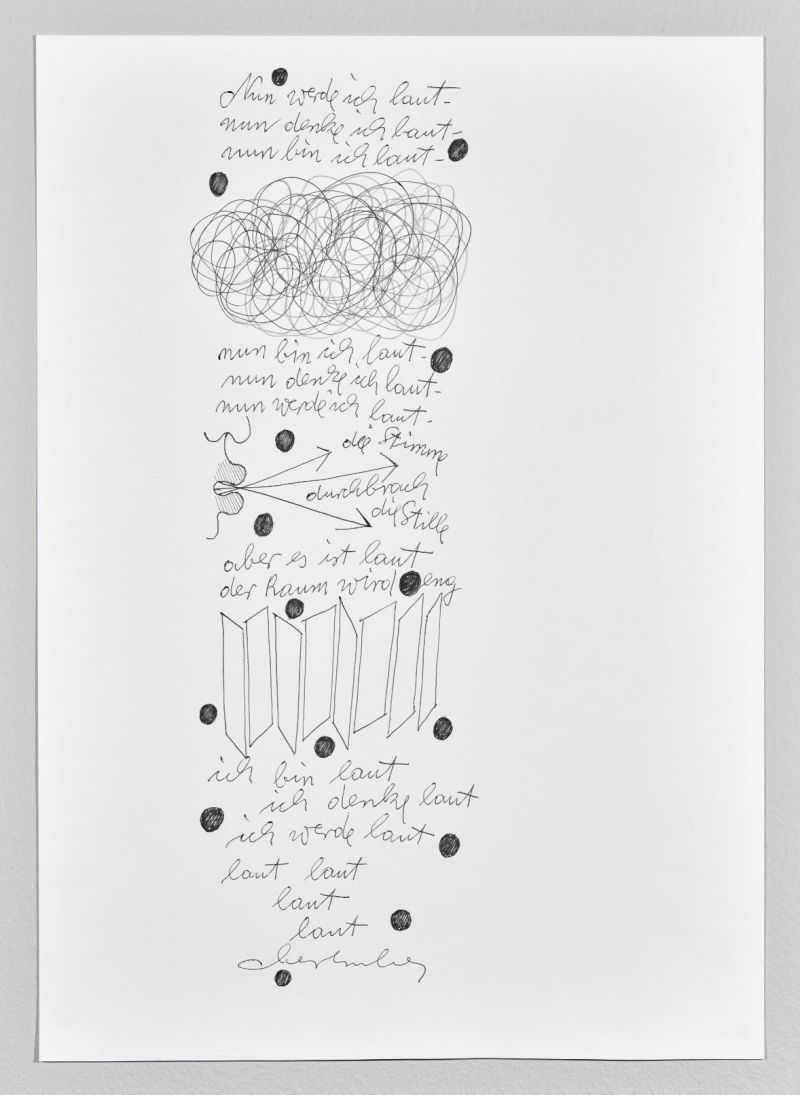 Nun werde ich laut-
nun denke ich laut-
nun bin ich laut-
nun bin ich laut-
nun denke ich laut-
nun werde ich laut-
die Stimme
durchbrach
die Stille
aber es ist laut
der Raum wird eng
ich bin laut
ich denke laut
ich werde laut
laut laut
laut
laut